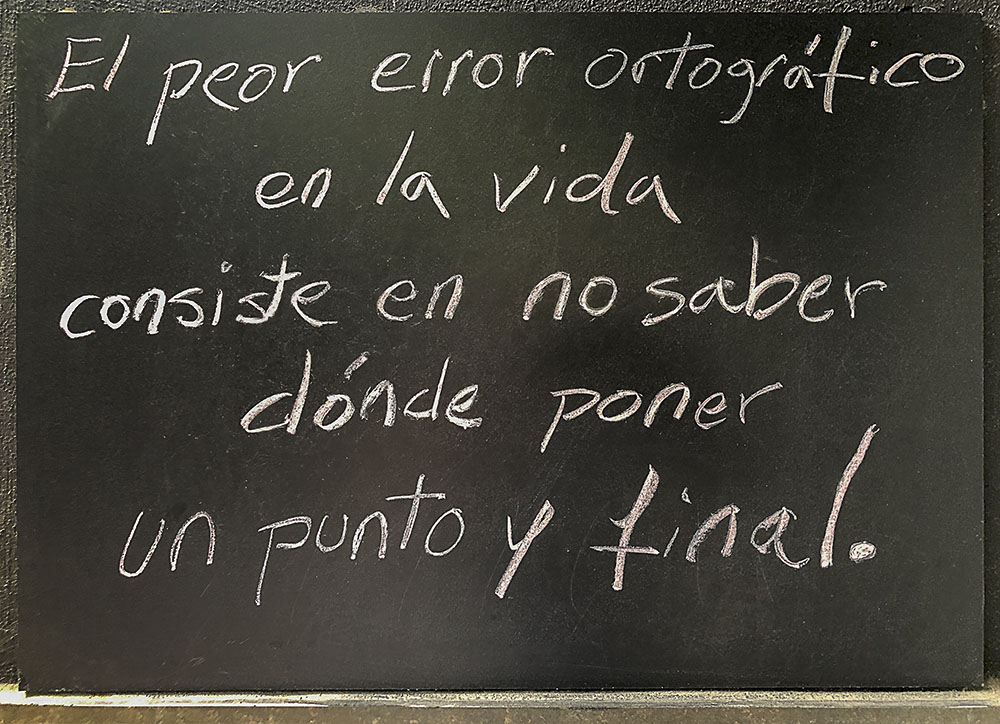 El peor error ortográfico
en la vida
consiste en no saber
dónde poner
un punto y final.